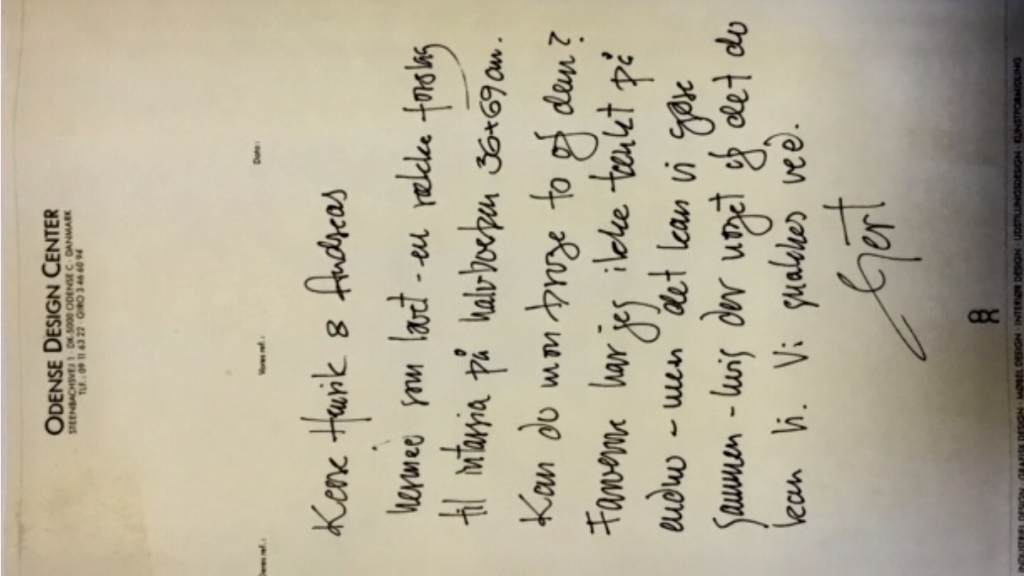 ODENSE DESIGN CENTER
STEENBACHSVEJ 1 · DK-5000 ODENSE C · DANMARK
TLF.: 09 11 63 22 · GIRO 3 46 60 94
Deres ref.: Vores ref.: Dato:
Kære Henrik & Andreas
hermed som lovet - en række forslag
til intarsia på halvbuen 36+69 cm.
Kan du mon bruge to af dem?
Farverne har jeg ikke tænkt på
endnu - men det kan vi gøre
sammen - hvis der noget af det du
kan li. Vi snakkes ved.
Gert
INDUSTRIEL DESIGN · GRAFISK DESIGN · MØBEL DESIGN · INTERIØR DESIGN · UDSTILLINGSDESIGN · KUNSTFORMIDLING